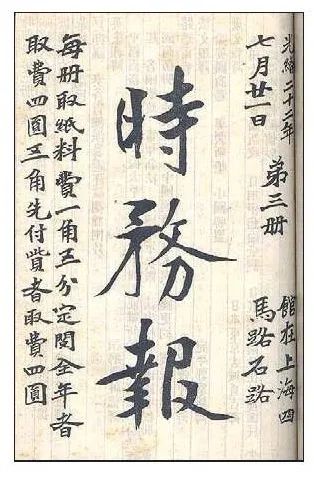 光緒二十二年
七月廿一日
第三册
館在上海四
馬路石路
時務報
每册取紙料費一角三分定閱全年者
取費四圓三角先付貲者取費四圓